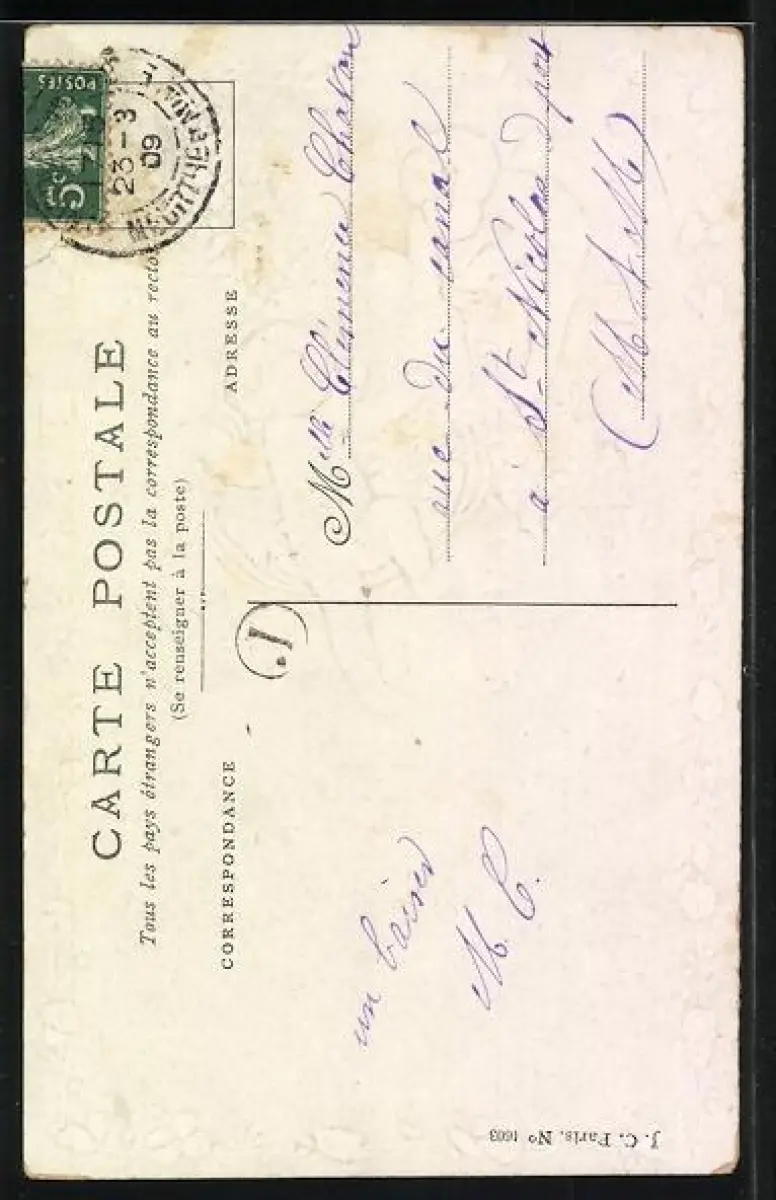 CARTE POSTALE
Tous les pays étrangers n'acceptent pas la correspondance au recto
(Se renseigner à la poste)
CORRESPONDANCE
ADRESSE
POSTES
5c
23-3
09
MEURTHE
1.
un baiser
M. C.
Melle Clémence
rue du canal
à St Nicolas d port
(M & M)
J. C. Paris. No 1603